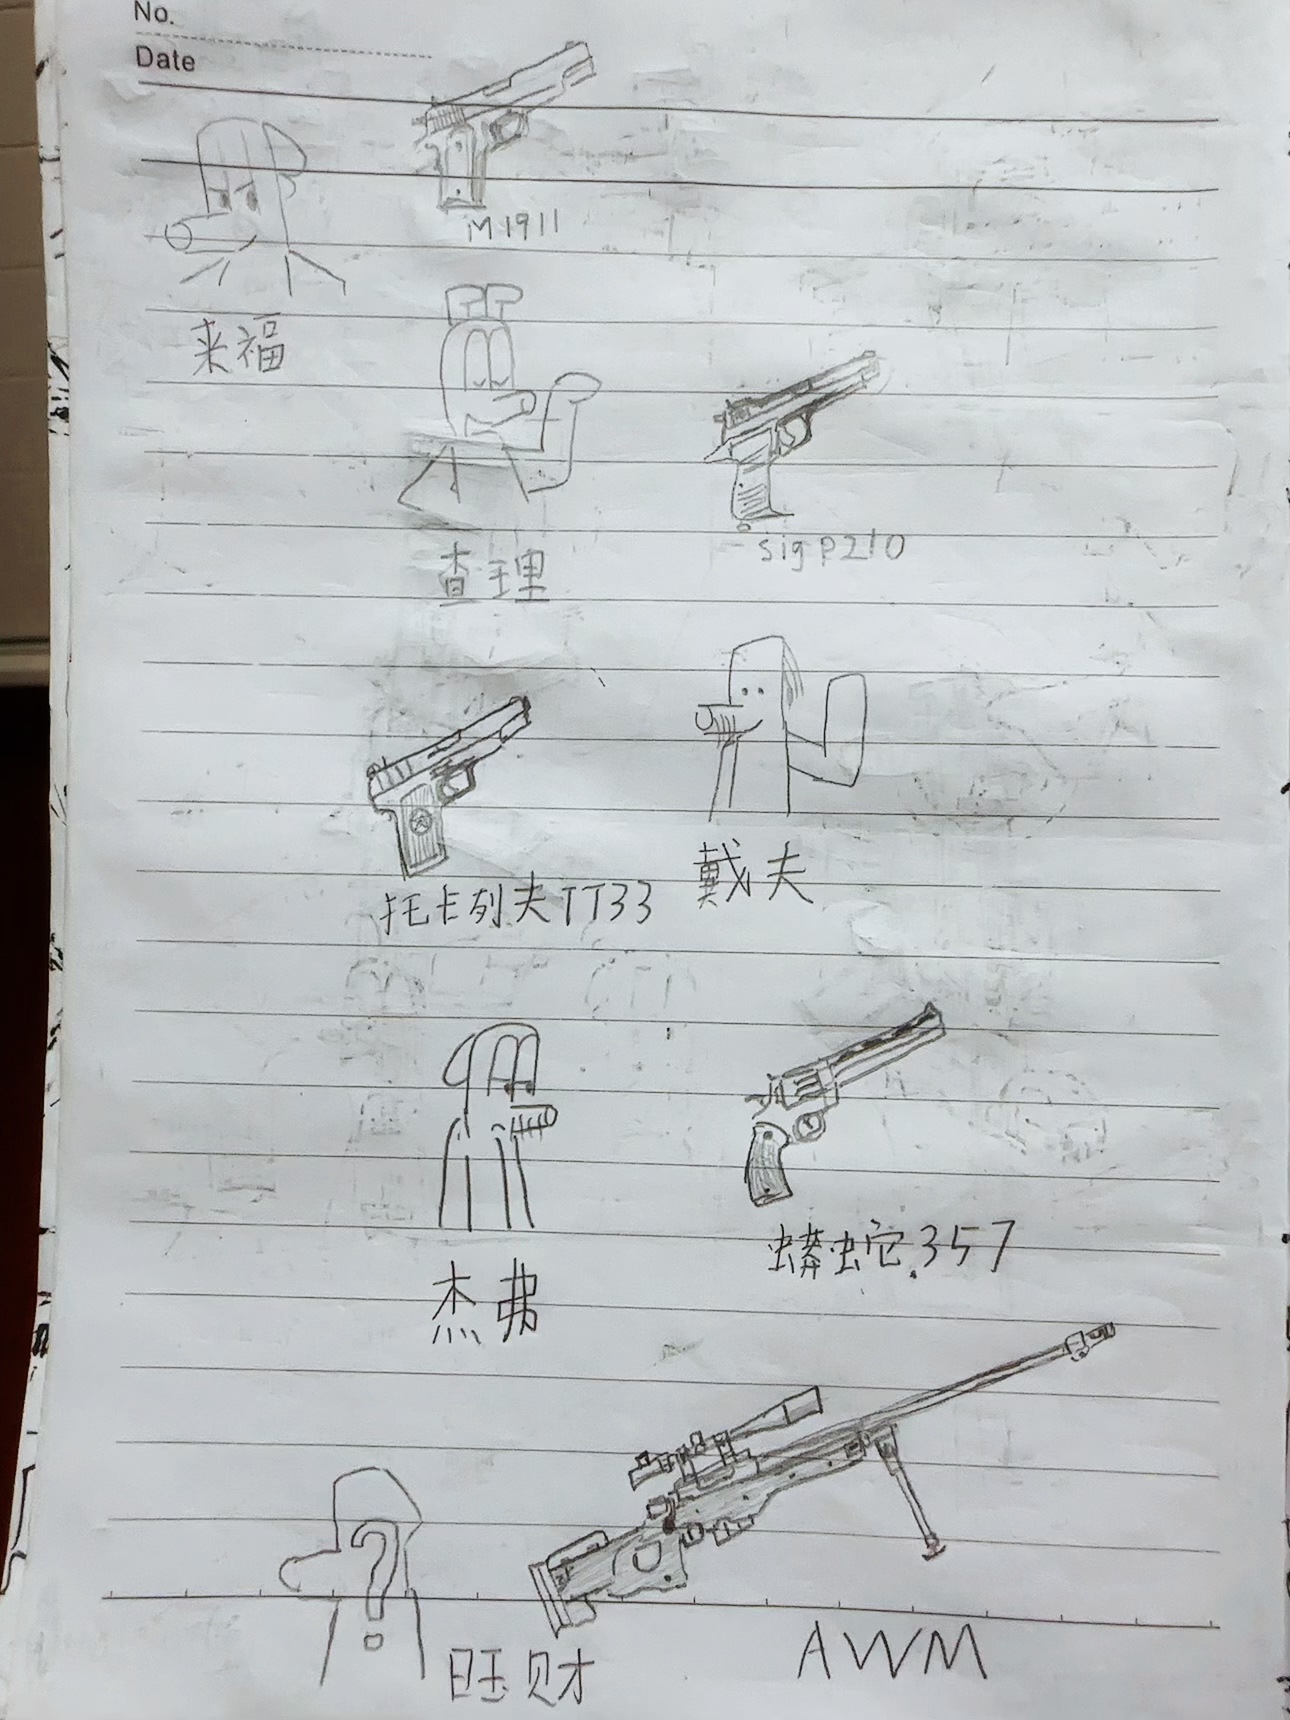 No.
Date
M1911
来福
查理
sig p210
托卡列夫TT33
戴夫
杰弗
蟒蛇.357
旺财
AWM